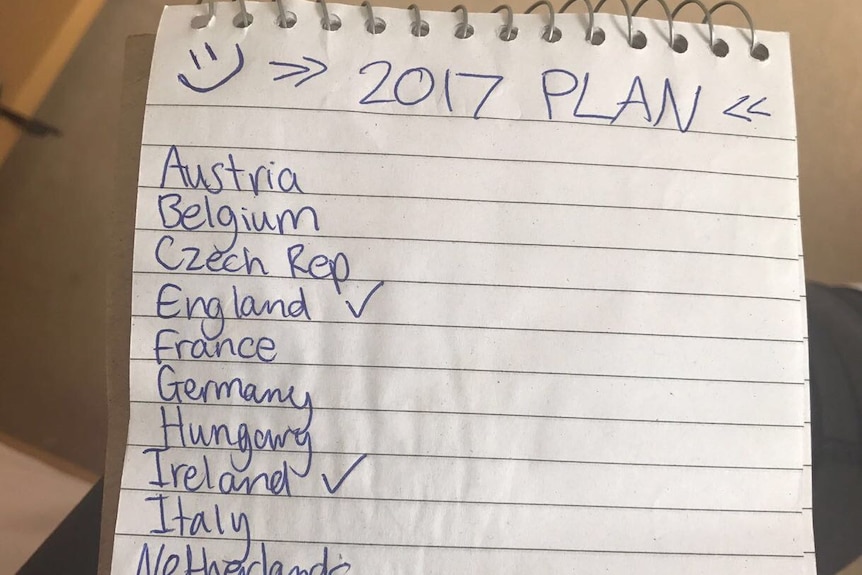 >> 2017 PLAN <<
Austria
Belgium
Czech Rep
England ✓
France
Germany
Hungary
Ireland ✓
Italy
Netherlands